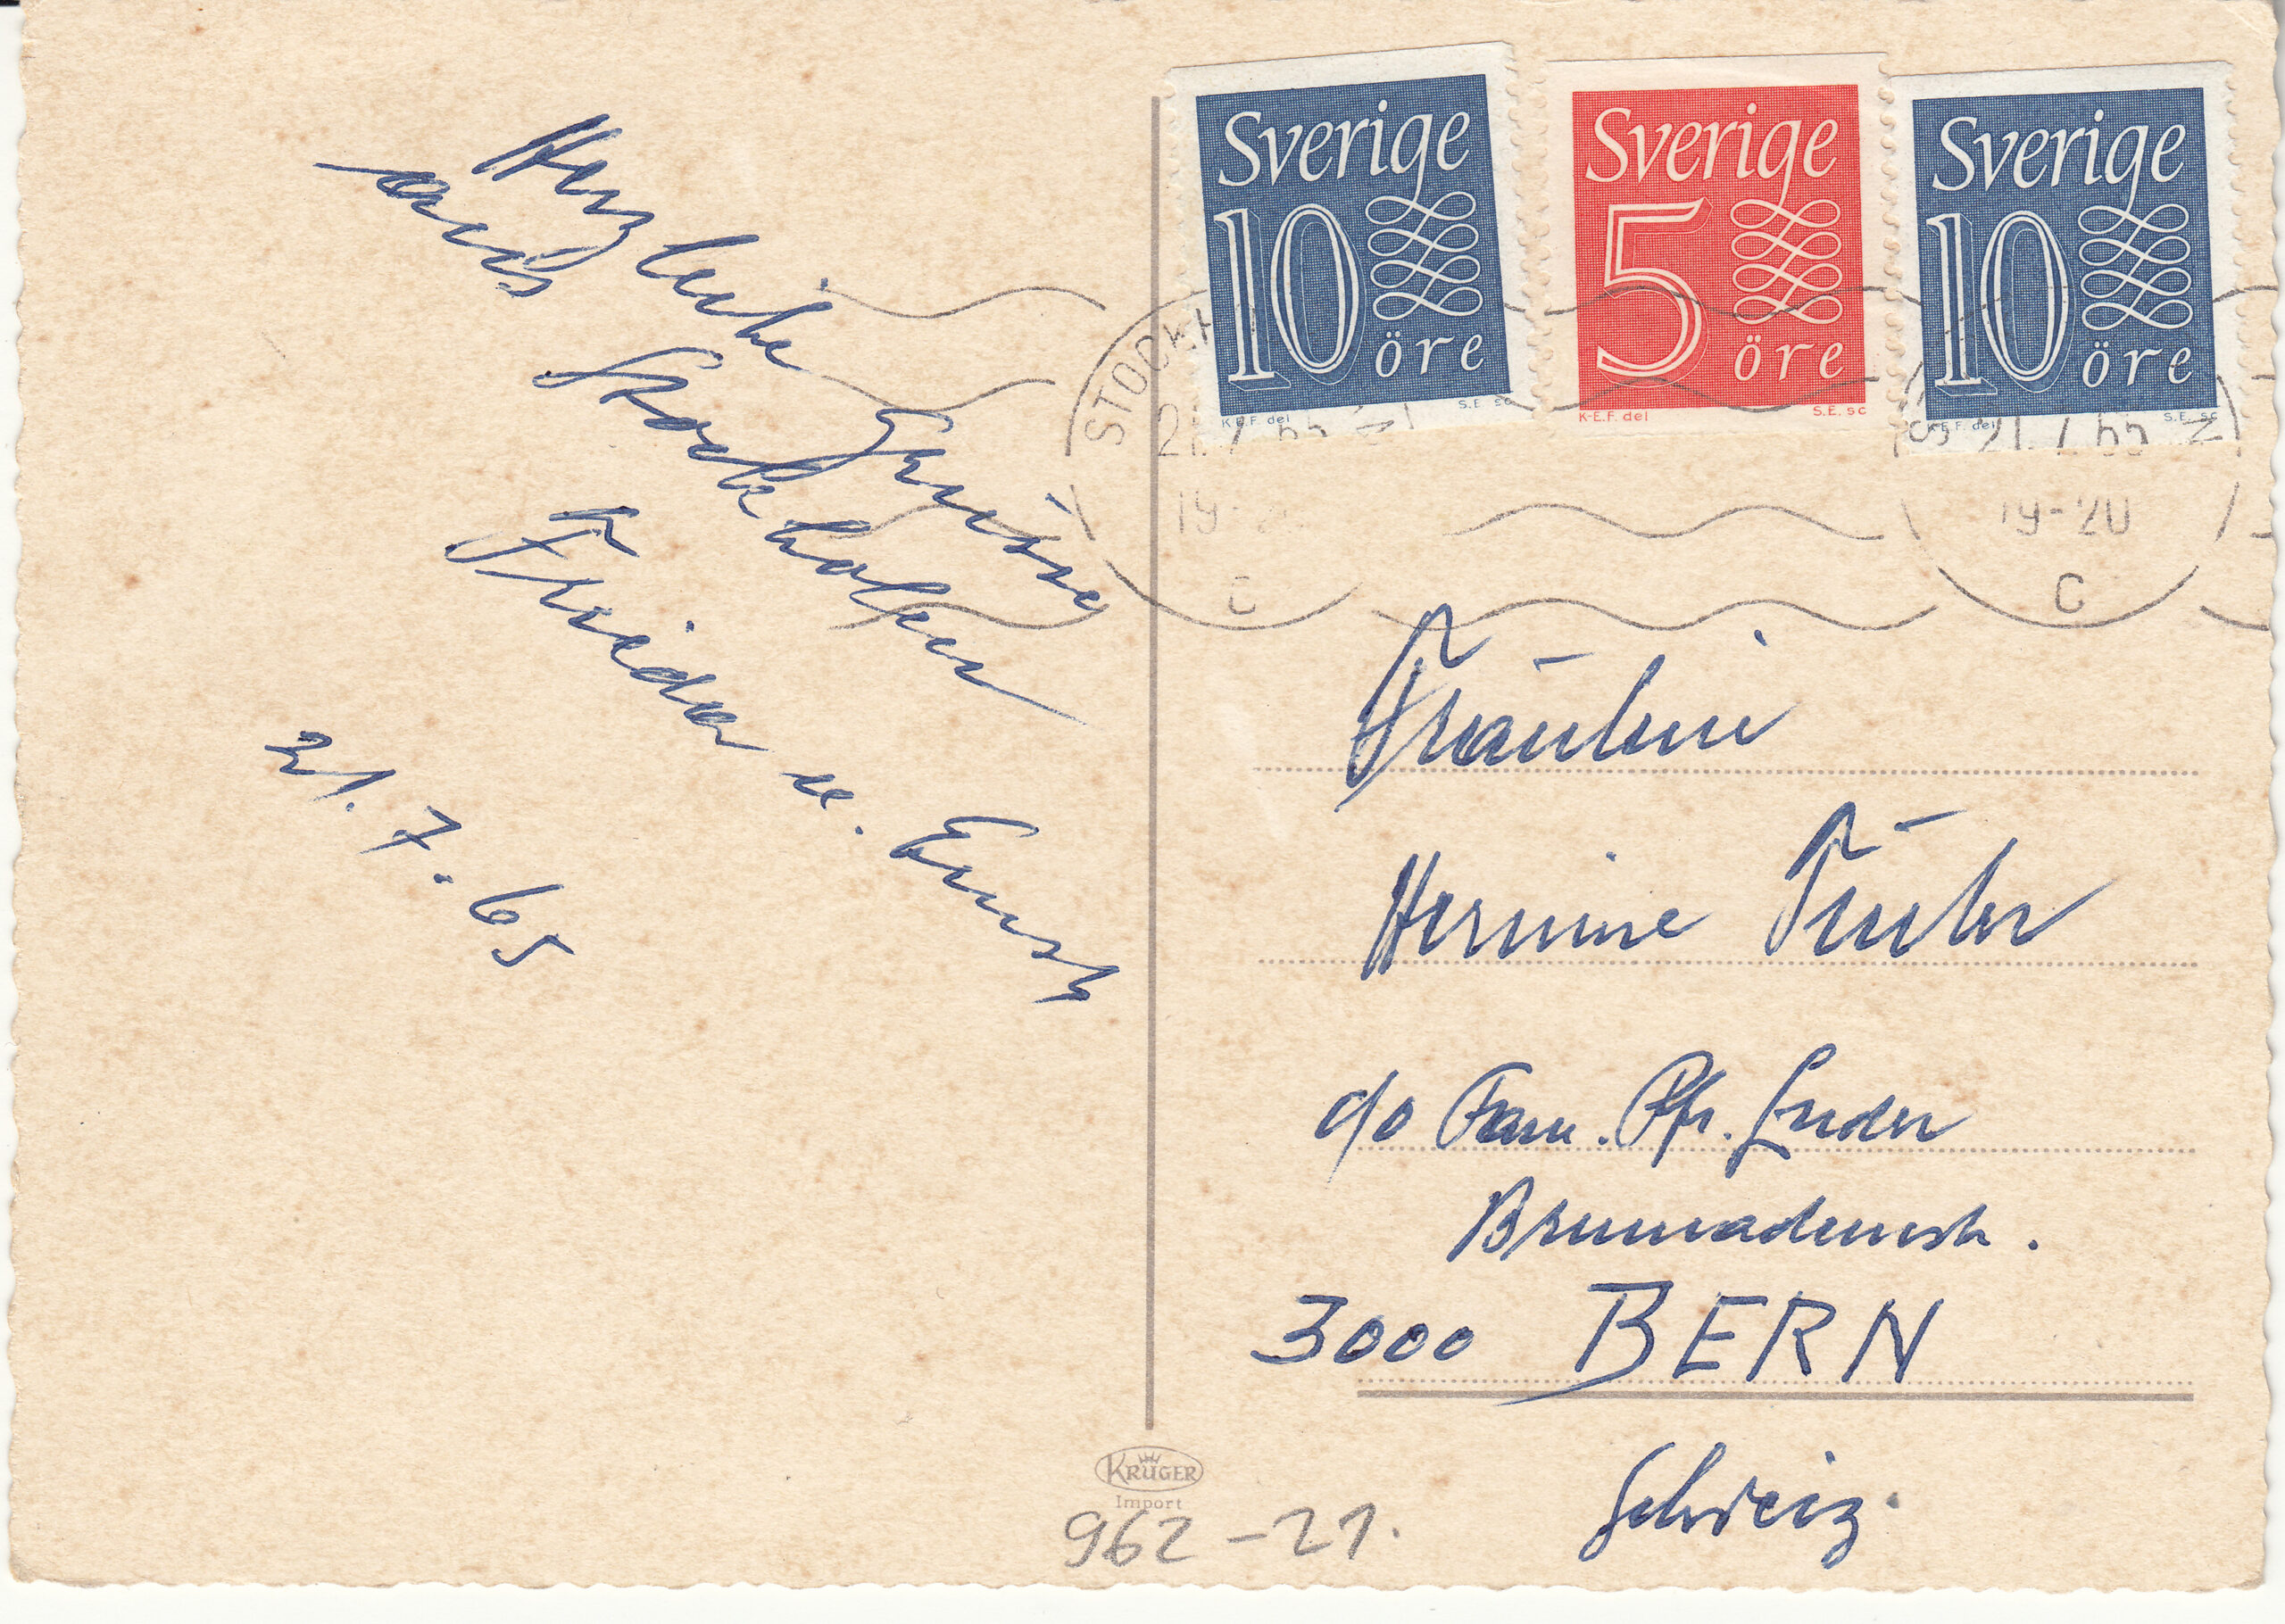 Herzliche Grüsse
aus Stockholm
Frieda u. Ernst
21. 7. 65
Sverige
10 öre
K-E.F. del
S.E. sc
Sverige
5 öre
K-E.F. del
S.E. sc
Sverige
10 öre
K-E.F. del
S.E. sc
STOCKH
21.7.65
19-20
C
21.7.65
19-20
C
Fräulein
Hermine
c/o Fam. Pfr. Luder
Brunnadernstr.
3000 BERN
Schweiz.
KRÜGER
Import
962-21.